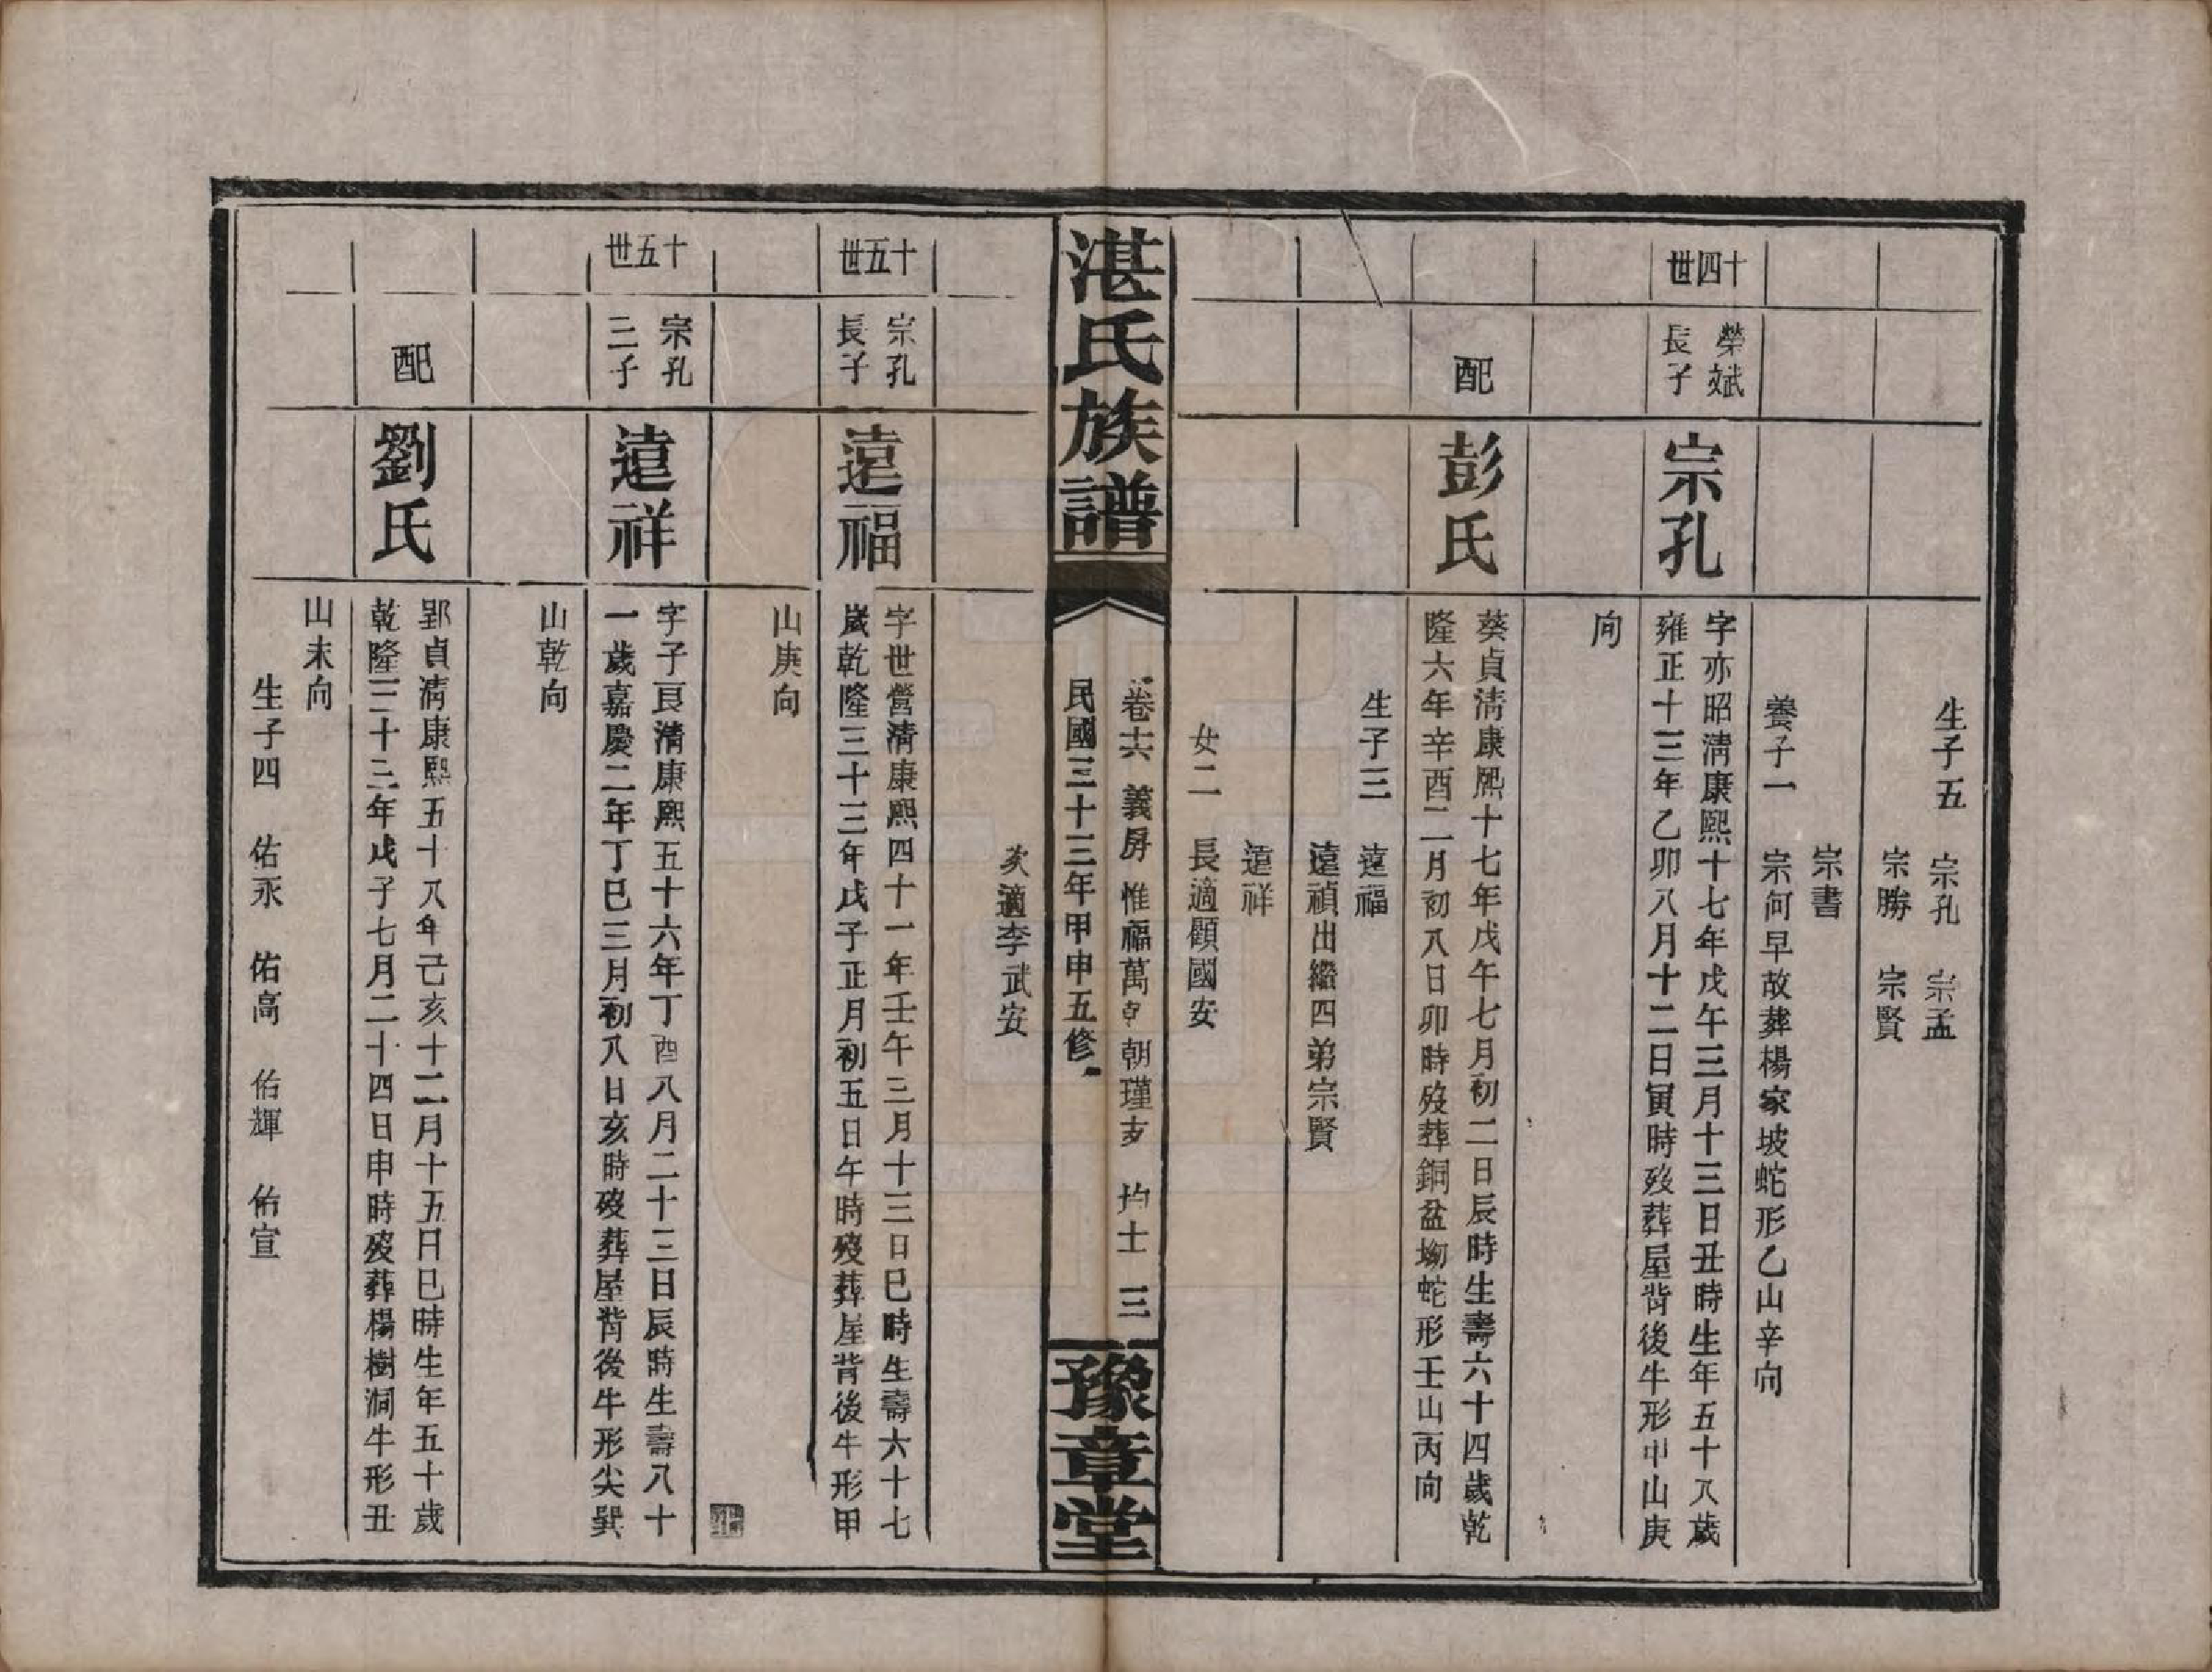 生子五　宗孔　宗孟
宗勝　宗賢
宗書
養子一　宗何早故葬楊家坡蛇形乙山辛向
十四世
榮斌
長子
宗孔
字亦昭清康熙十七年戊午三月十三日丑時生年五十八歲
雍正十三年乙卯八月十二日寅時歿葬屋背後牛形甲山庚
向
配
彭氏
葵貞清康熙十七年戊午七月初二日辰時生壽六十四歲乾
隆六年辛酉二月初八日卯時歿葬銅盆坳蛇形壬山丙向
生子三　遠福
遠禎出繼四弟宗賢
遠祥
女二　長適顧國安
湛氏族譜
卷十六　義房　惟福萬　朝瑾支　均士　三
民國三十三年甲申五修
豫章堂
次適李武安
十五世
宗孔
長子
遠福
字世營清康熙四十一年壬午三月十三日巳時生壽六十七
歲乾隆三十三年戊子正月初五日午時歿葬屋背後牛形甲
山庚向
十五世
宗孔
三子
遠祥
字子良清康熙五十六年丁酉八月二十三日辰時生壽八十
一歲嘉慶二年丁巳三月初八日亥時歿葬屋背後牛形尖巽
山乾向
配
劉氏
郢貞清康熙五十八年己亥十二月十五日巳時生年五十歲
乾隆三十三年戊子七月二十四日申時歿葬楊樹洞牛形丑
山未向
生子四　佑永　佑高　佑輝　佑宣